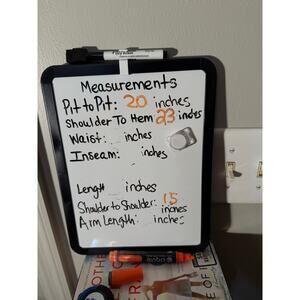 Measurements
Pit to Pit: 20 inches
Shoulder To Hem 23 inches
Waist: inches
Inseam: inches
Length inches
Shoulder to Shoulder: 15 inches
Arm Length: inches